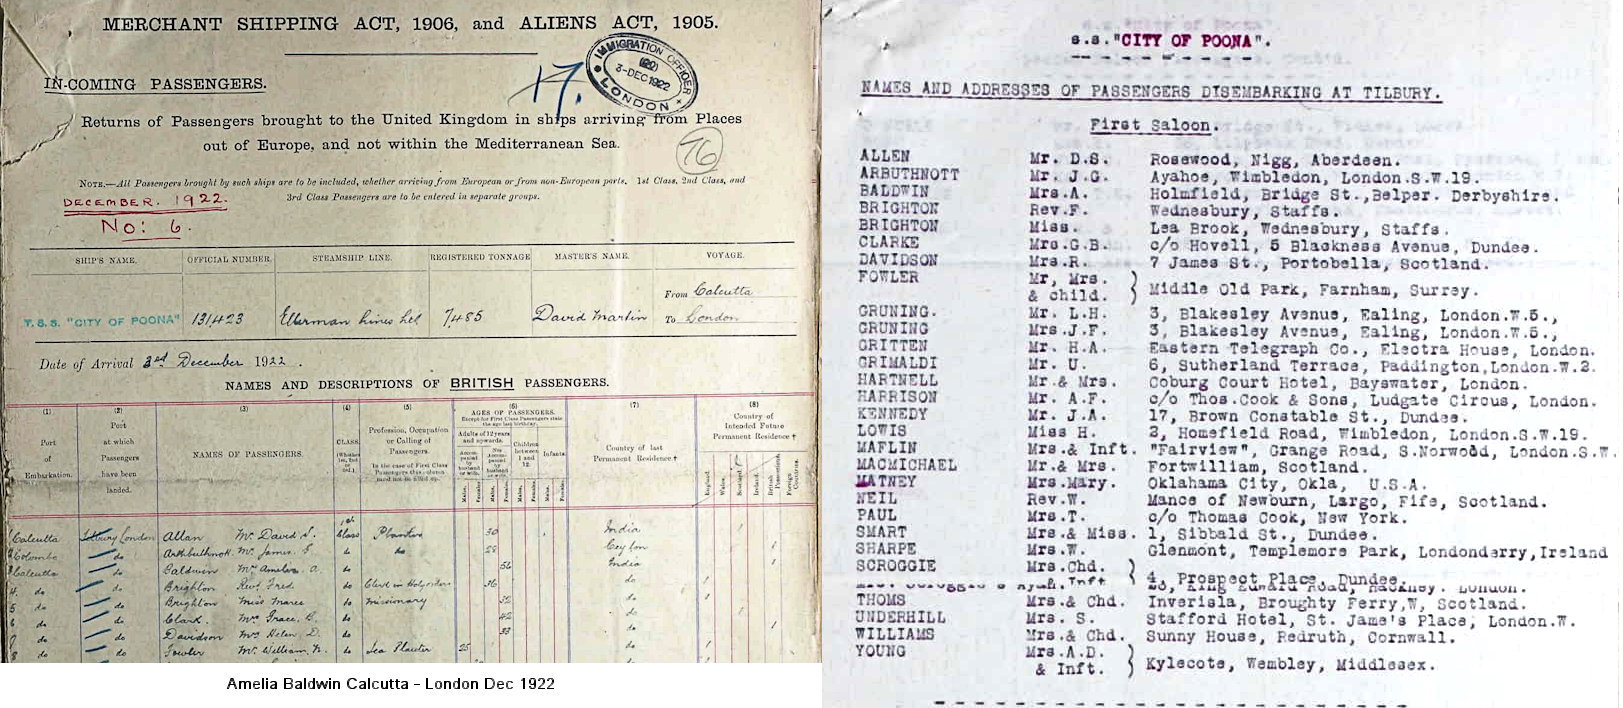 MERCHANT SHIPPING ACT, 1906, and ALIENS ACT, 1905.
IMMIGRATION OFFICER
(29)
3-DEC 1922
LONDON
17.
IN-COMING PASSENGERS.
Returns of Passengers brought to the United Kingdom in ships arriving from Places
out of Europe, and not within the Mediterranean Sea.
76
NOTE.—All Passengers brought by such ships are to be included, whether arriving from European or from non-European ports. 1st Class, 2nd Class, and
3rd Class Passengers are to be entered in separate groups.
DECEMBER. 1922.
No: 6.
SHIP'S NAME. OFFICIAL NUMBER. STEAMSHIP LINE. REGISTERED TONNAGE MASTER'S NAME. VOYAGE.
From Calcutta
T.S.S. "CITY OF POONA" 131423 Ellerman Lines Ltd 7485 David Martin To London
Date of Arrival 3rd December 1922.
NAMES AND DESCRIPTIONS OF BRITISH PASSENGERS.
(1) (2) (3) (4) (5) (6) (7) (8)
Port of Embarkation.
Port at which Passengers have been landed.
NAMES OF PASSENGERS.
CLASS. (Whether 1st, 2nd or 3rd.)
Profession, Occupation or Calling of Passengers.
In the case of First Class Passengers this column need not be filled up.
AGES OF PASSENGERS.
Adults of 12 years and upwards.
Children between 1 and 12.
Infants.
Country of last Permanent Residence†
Country of Intended Future Permanent Residence†
England. Wales. Scotland. Ireland. British Possessions. Foreign Countries.
1 Calcutta Tilbury London Allan Mr David S. 1st Class Planter 30 India
2 Colombo do Arthbuthnok Mr James G do do 28 Ceylon
3 Calcutta do Baldwin Mrs Amelia A. do 56 India
4 do do Brighton Revd Fred do Clerk in Holy orders 36 do
5 do do Brighton Miss do Missionary 32 do
6 do do Clark Mrs Grace B. do 42 do
7 do do Davidson Mrs Helen D. do 33 do
8 do do Fowler Mr William N. do Tea Planter 25 do
Amelia Baldwin Calcutta – London Dec 1922
s.s."CITY OF POONA".
NAMES AND ADDRESSES OF PASSENGERS DISEMBARKING AT TILBURY.
First Saloon.
ALLEN Mr. D.S. Rosewood, Nigg, Aberdeen.
ARBUTHNOTT Mr. J.G. Ayahoe, Wimbledon, London.S.W.19.
BALDWIN Mrs.A. Holmfield, Bridge St.,Belper. Derbyshire.
BRIGHTON Rev.F. Wednesbury, Staffs.
BRIGHTON Miss. Lea Brook, Wednesbury, Staffs.
CLARKE Mrs.G.B. c/o Hovell, 5 Blackness Avenue, Dundee.
DAVIDSON Mrs.R. 7 James St., Portobella, Scotland.
FOWLER Mr, Mrs. & child. Middle Old Park, Farnham, Surrey.
GRUNING. Mr. L.H. 3, Blakesley Avenue, Ealing, London.W.5.,
GRUNING Mrs.J.F. 3, Blakesley Avenue, Ealing, London.W.5.,
GRITTEN Mr. H.A. Eastern Telegraph Co., Electra House, London.
GRIMALDI Mr. U. 6, Sutherland Terrace, Paddington,London.W.2.
HARTNELL Mr.& Mrs. Coburg Court Hotel, Bayswater, London.
HARRISON Mr. A.F. c/o Thos.Cook & Sons, Ludgate Circus, London.
KENNEDY Mr. J.A. 17, Brown Constable St., Dundee.
LOWIS Miss H. 3, Homefield Road, Wimbledon, London.S.W.19.
MAFLIN Mrs.& Inft. "Fairview", Grange Road, S.Norwood, London.S.W.
MACMICHAEL Mr.& Mrs. Fortwilliam, Scotland.
MATNEY Mrs.Mary. Oklahoma City, Okla, U.S.A.
NEIL Rev.W. Mance of Newburn, Largo, Fife, Scotland.
PAUL Mrs.T. c/o Thomas Cook, New York.
SMART Mrs.& Miss. 1, Sibbald St., Dundee.
SHARPE Mrs.W. Glenmont, Templemore Park, Londonderry,Ireland
SCROGGIE Mrs.Chd. & Inft 4, Prospect Place, Dundee.
THOMS Mrs.& Chd. Inverisla, Broughty Ferry,W, Scotland.
UNDERHILL Mrs. S. Stafford Hotel, St. Jame's Place, London.W.
WILLIAMS Mrs.& Chd. Sunny House, Redruth, Cornwall.
YOUNG Mrs.A.D. & Inft. Kylecote, Wembley, Middlesex.